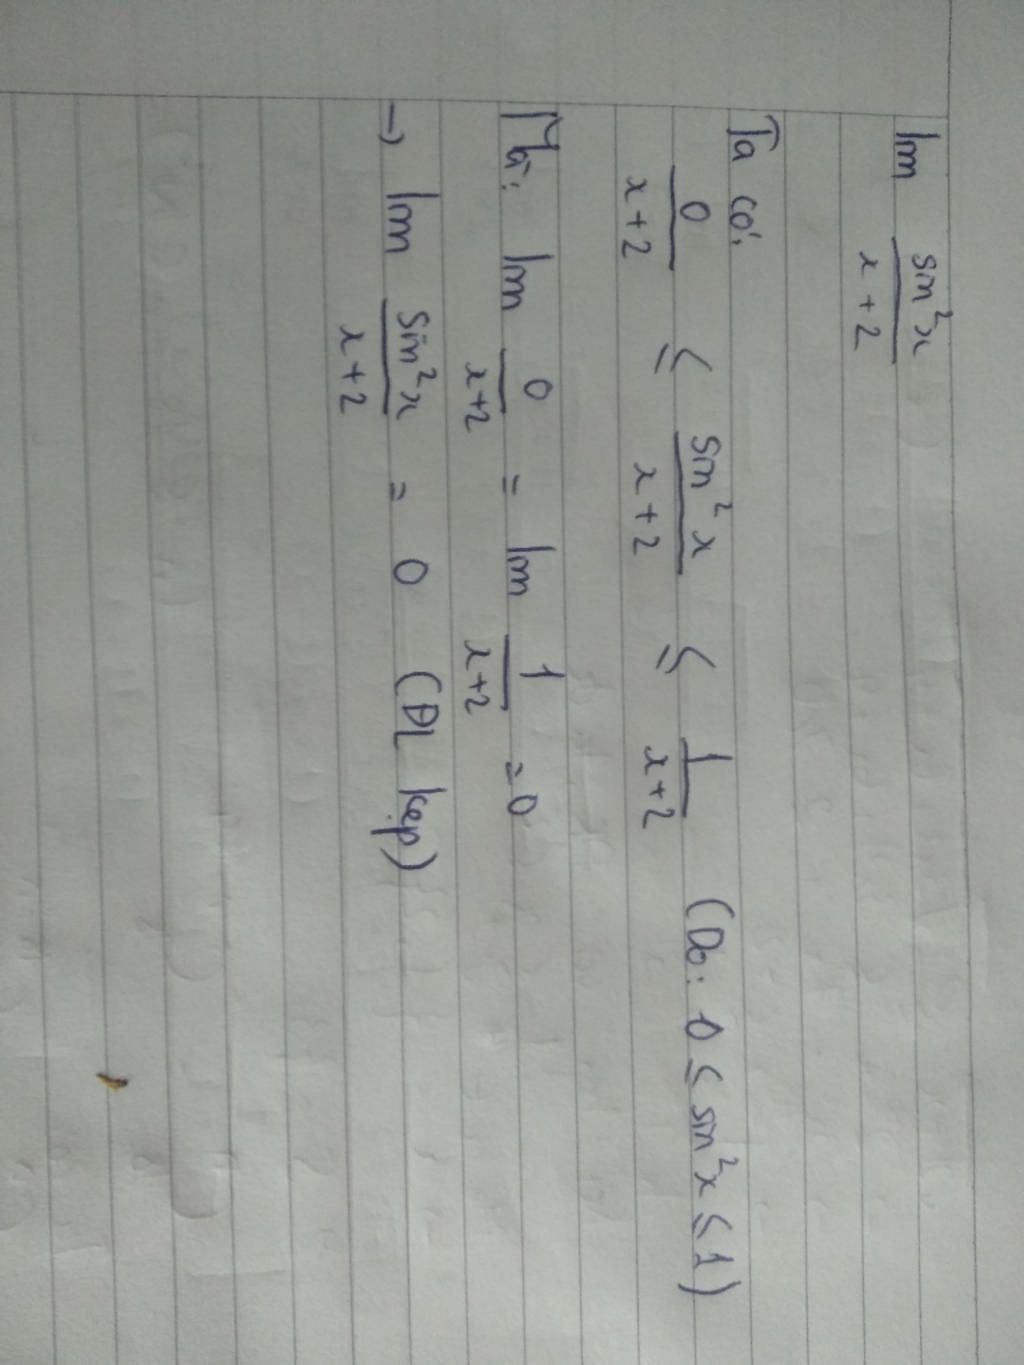 lim sin²x / x+2
Ta có:
0 / x+2 ≤ sin²x / x+2 ≤ 1 / x+2 (Do: 0 ≤ sin²x ≤ 1)
Mà: lim 0 / x+2 = lim 1 / x+2 = 0
→ lim sin²x / x+2 = 0 (ĐL kẹp)